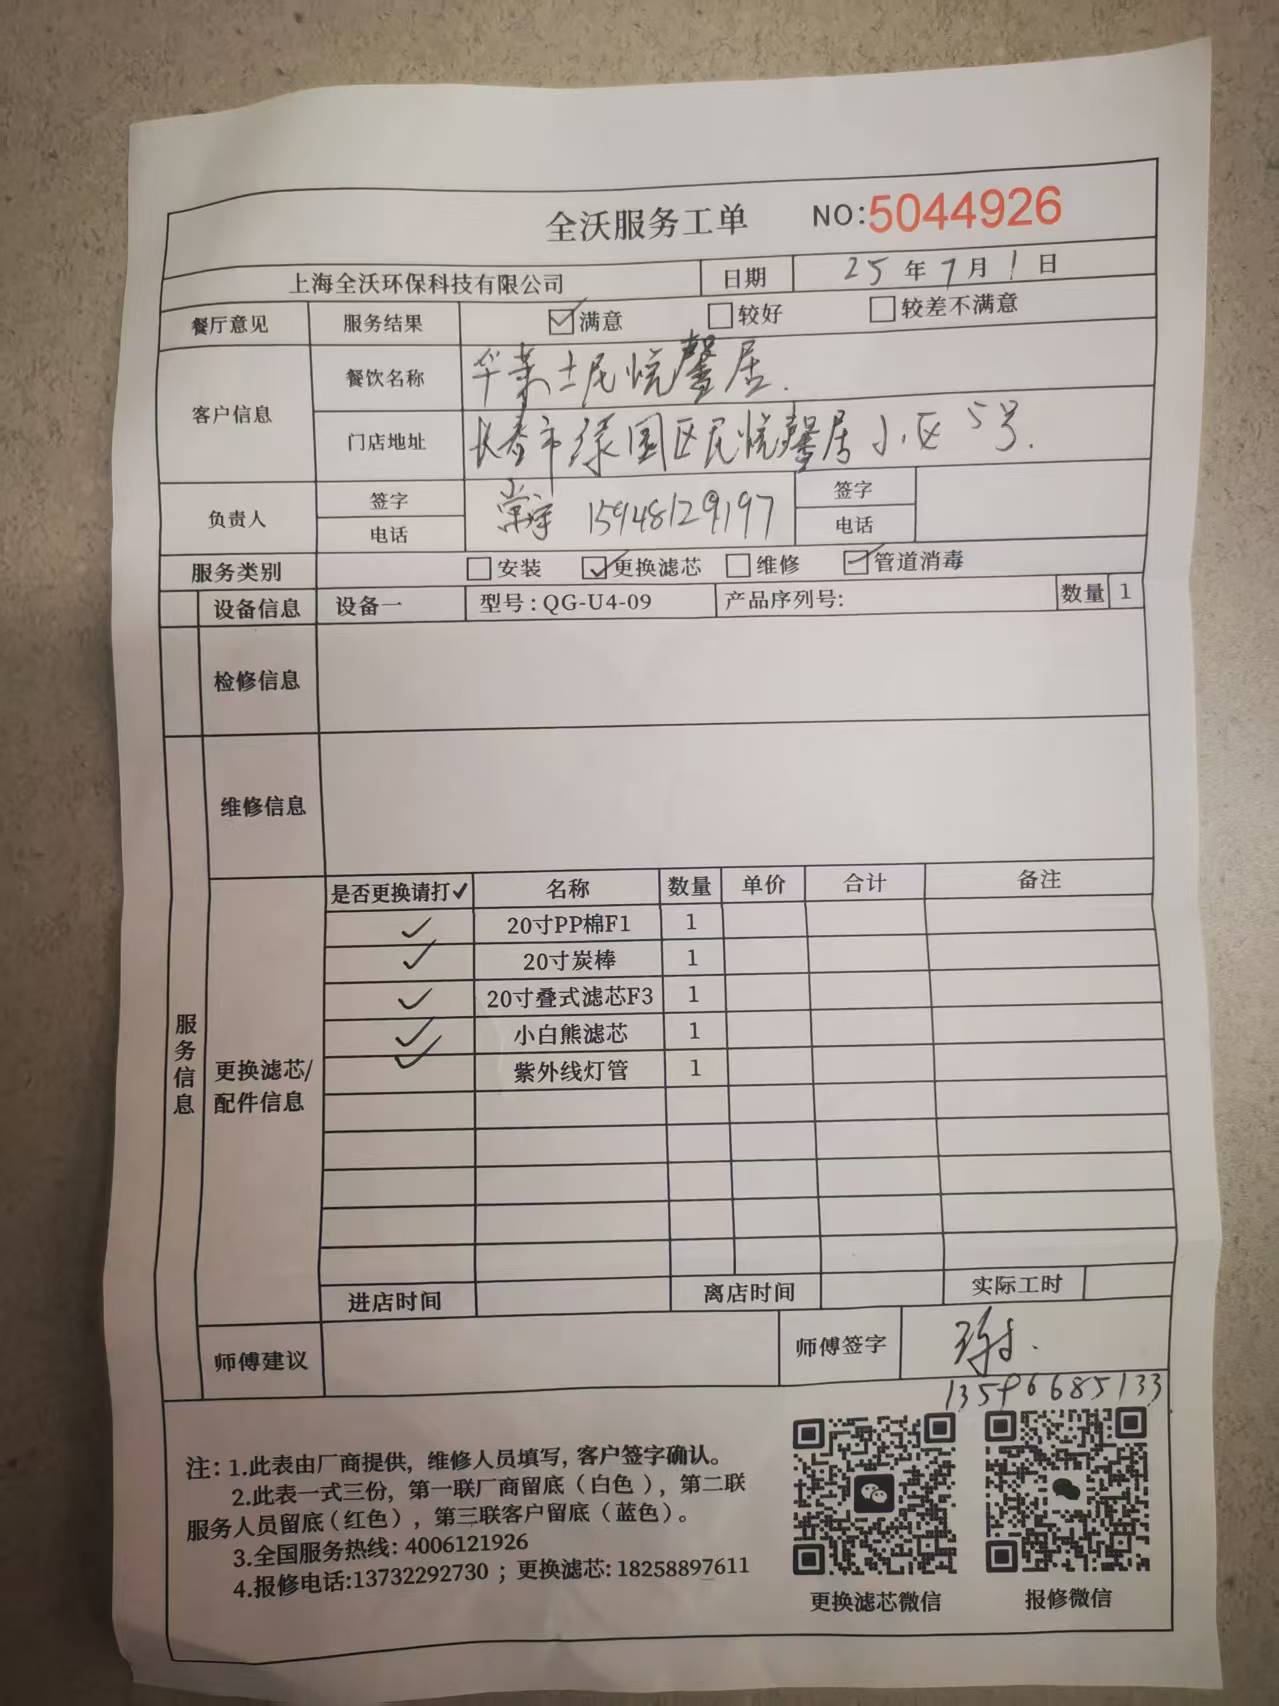 全沃服务工单 NO:5044926
上海全沃环保科技有限公司 日期 25年7月1日
餐厅意见 服务结果 满意 较好 较差不满意
客户信息 餐饮名称 华莱士民悦馨居.
门店地址 长春市绿园区民悦馨居小区5号.
负责人 签字 电话 15948129197 签字 电话
服务类别 安装 更换滤芯 维修 管道消毒
设备信息 设备一 型号:QG-U4-09 产品序列号: 数量 1
检修信息
维修信息
服务信息
更换滤芯/
配件信息
是否更换请打✓ 名称 数量 单价 合计 备注
✓ 20寸PP棉F1 1
✓ 20寸炭棒 1
✓ 20寸叠式滤芯F3 1
✓ 小白熊滤芯 1
✓ 紫外线灯管 1
进店时间 离店时间 实际工时
师傅建议 师傅签字
13596685133
注:1.此表由厂商提供,维修人员填写,客户签字确认。
2.此表一式三份,第一联厂商留底(白色),第二联
服务人员留底(红色),第三联客户留底(蓝色)。
3.全国服务热线:4006121926
4.报修电话:13732292730;更换滤芯:18258897611
更换滤芯微信 报修微信